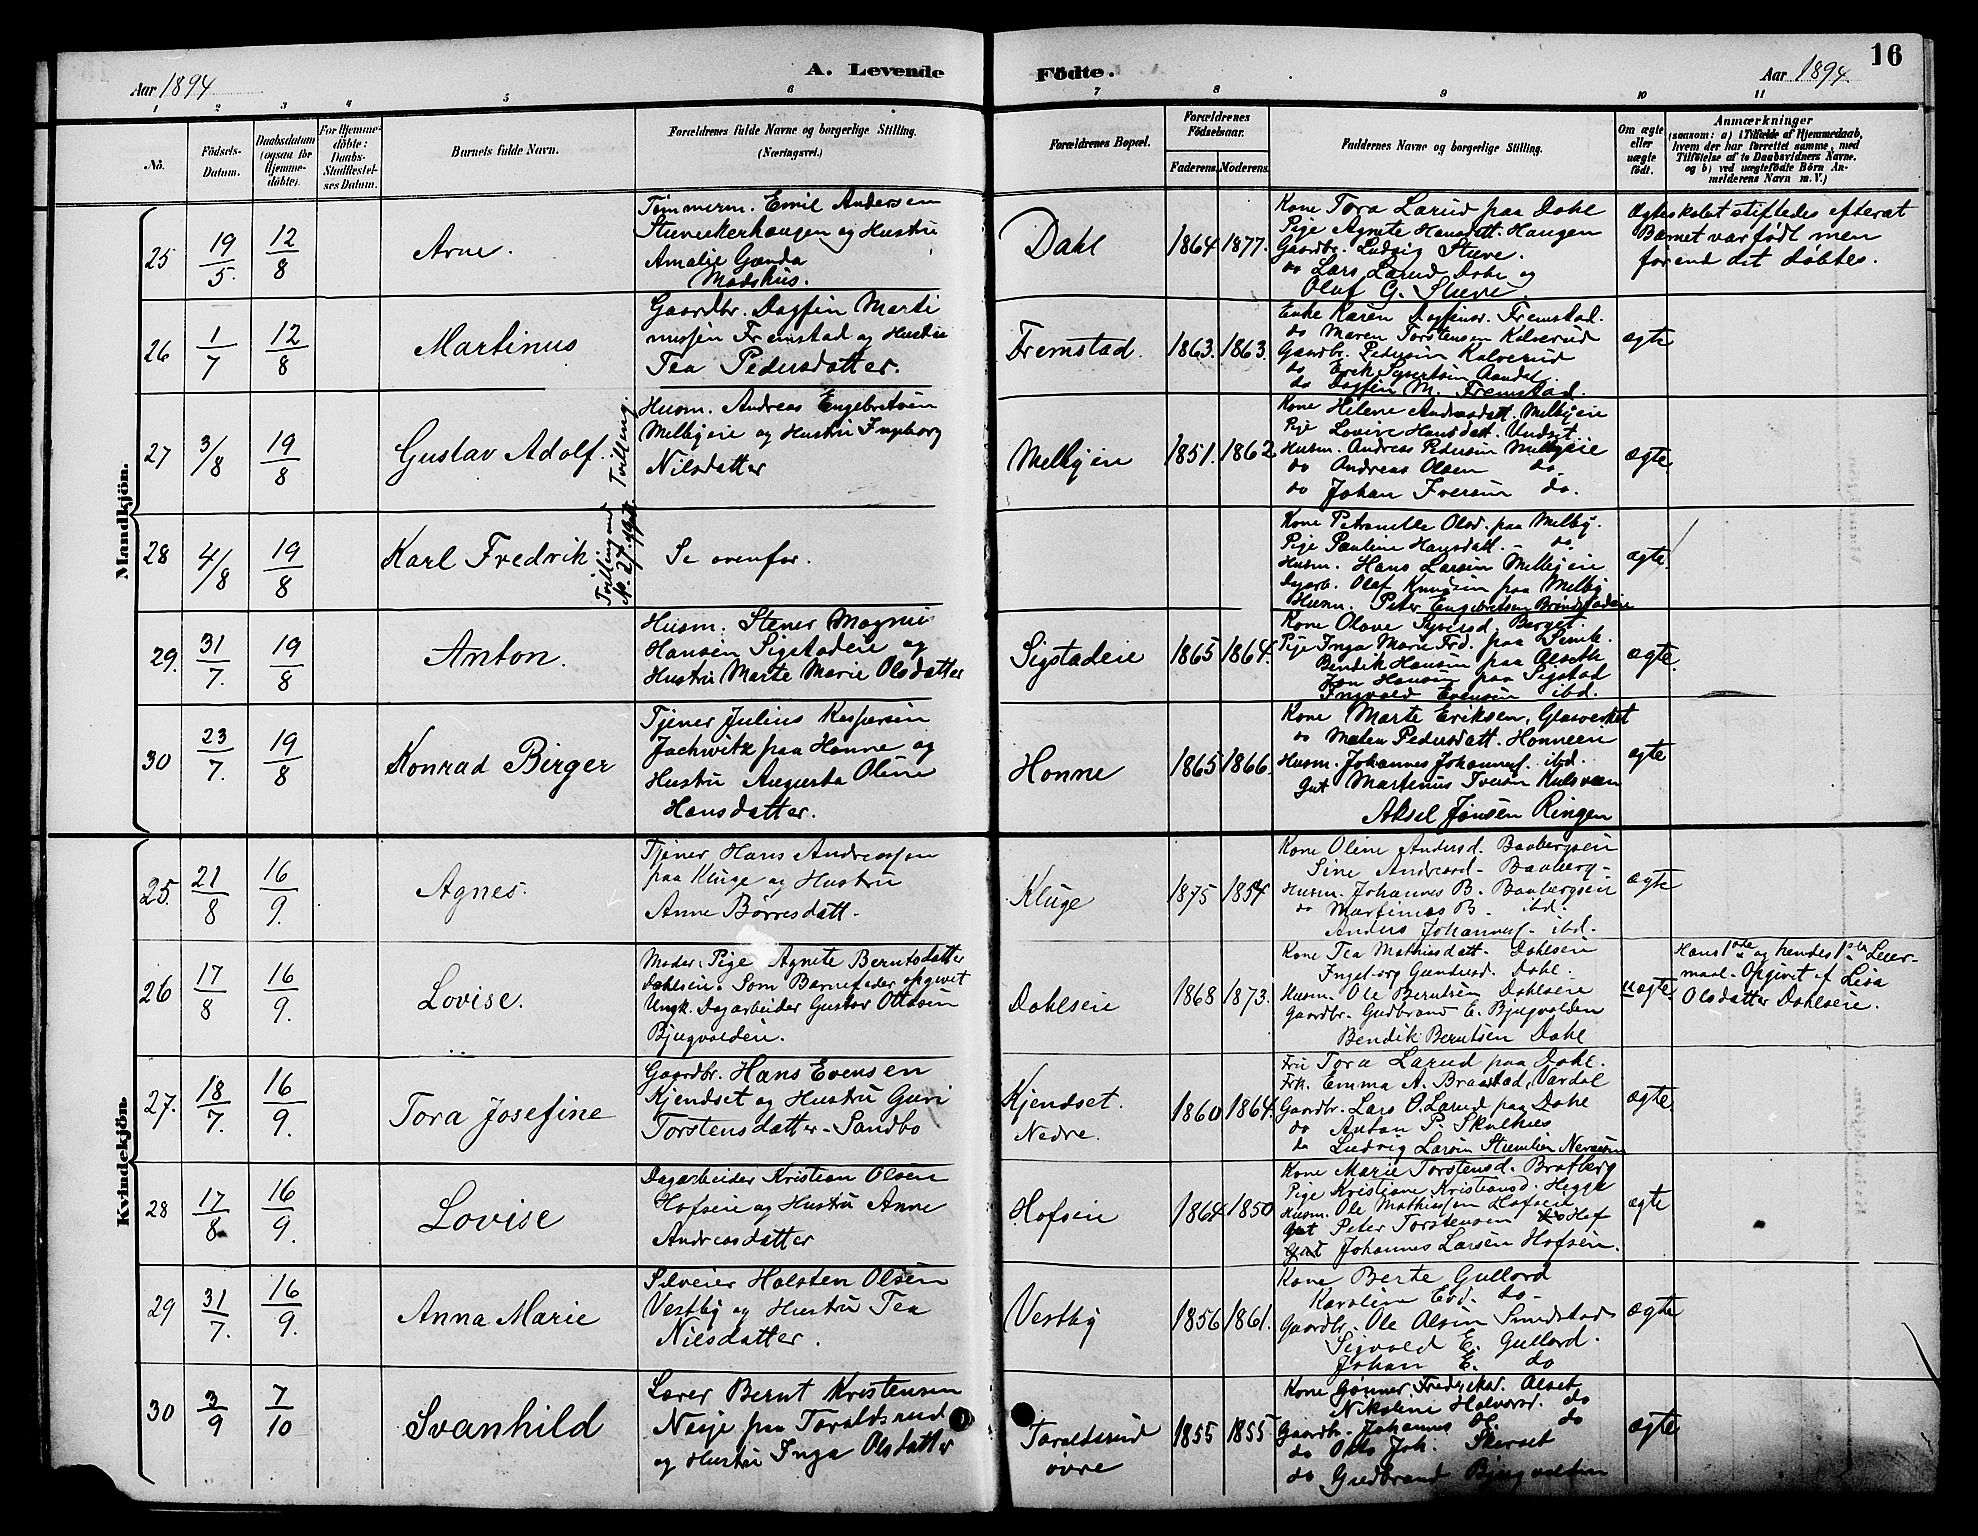 Aar 1894
A. Levende
Fødte.
Aar 1894.
16
1 2 3 4 5 6 7 8 9 10 11
No.
Fødsels-
Datum.
Daabsdatum
(ogsaa for
Hjemme-
døbte).
For Hjemme-
døbte:
Daabs-
Stadfæstel-
ses Datum.
Barnets fulde Navn.
Forældrenes fulde Navne og borgerlige Stilling.
(Næringsvei.)
Forældrenes Bopæl.
Forældrenes
Fødselsaar.
Faderens. Moderens.
Faddernes Navne og borgerlige Stilling.
Om ægte
eller
uægte
født.
Anmærkninger
(saasom: a) i Tilfælde af Hjemmedaab,
hvem der har forrettet samme, med
Tilføielse af to Daabsvidners Navne.
og b) ved uægtefødte Børn An-
melderens Navn m. V.)
Mandkjön.
25
19/5.
12/8
Arne.
Tømmerm. Emil Andersen
Stuveekerhaugen og Hustru
Amalie Gunda
Madshus.
Dahl
1864 1877.
Kone Tora Larud paa Dahl
Pige Agnete Hansdatt. Haugen
Gaardbr. Ludvig Stuve.
do Lars Larud Dahl og
Olaf G. Stuve.
Ægteskabet stiftedes efterat
Barnet var født men
førend det døbtes.
26
1/7
12/8
Martinus
Gaardbr. Dagfin Marti
nussen Fremstad og Hustru
Tea Pedersdatter.
Fremstad.
1863. 1863.
Enke Karen Dagfinsd. Fremstad.
do Maren Torstensen Kalverud
Gaardbr. Pedersen Kalverud
do Erik Syvertsen Aandal
do Dagfin M. Fremstad.
ægte
27
3/8
19/8
Gustav Adolf.
Tvilling.
Husm. Andreas Engebretsen
Melbyeie og Hustru Ingeborg
Nilsdatter
Melbyeie
1851. 1862
Kone Helene Andersdatt. Melbyeie
Pige Lovise Hansdatt. Undset
Husm. Andreas Pedersen Melbyeie
do Andreas Olsen do
do Johan Iversen do.
ægte.
28
4/8
19/8
Karl Fredrik
Tvilling med
No. 27
Se ovenfor.
Kone Petronelle Olsd. paa Melby.
Pige Pauline Hansdatt. - do.
Husm. Hans Larsen Melbyeie
Dagarb. Olaf Knudsen paa Melby
Husm. Peter Engebretsen Brøndstadeie
ægte.
29.
31/7.
19/8
Anton.
Husm. Stener Magnus
Hansen Sigstadeie og
Hustru Marte Marie Olsdatter
Sigstadeie
1865 1864.
Kone Olave Syversd. Berget.
Pige Inga Marie Frd. paa Smik.
Bendik Hansen paa Alseth
Jon Hansen paa Sigstad
Ingvald Evensen ibd.
ægte.
30
23/7.
19/8
Konrad Birger
Tjener Julius Kaspersen
Jachwitz paa Honne og
Hustru Augusta Oline
Hansdatter.
Honne
1865 1866.
Kone Marte Eriksen, Glasverket
do Maten Pedersdatt. Honneeie
Husm. Johannes Johannes. ibd.
Gut Martinus Iversen Kulsveen
Aksel Jonsen Ringen
ægte
Kvindekjön.
25.
21/8
16/9.
Agnes.
Tjener Hans Andreassen
paa Kluge og Hustru
Anne Børresdatt.
Kluge
1875 1854
Kone Oline Andersd. Baabergseie
Sine Andreasd. Baaberg-
Husm. Johannes B. Baabergseie
do Martinius B. ibd.
Anders Johannes. ibd.
ægte
26
17/8
16/9.
Lovise.
Moder: Pige Agnete Berntsdatter
Dahlseie. Som Barnefader opgivet
Ungk. Dagarbeider Gustav Ottosen
Bjugvoldeie.
Dahlseie
1868 1873.
Kone Tea Mathiasdatt. Dahlseie
Ingeborg Gundersd. Dahl.
Husm. Ole Berntsen Dahlseie
Gaardbr. Gudbrand E. Bjugvolden
Bendik Berntsen Dahl
uægte.
Hans 1ste og hendes 1ste Leier-
maal. Opgivet af Lisa
Olsdatter Dahlseie.
27.
18/7.
16/9.
Tora Josefine
Gaardbr. Hans Evensen
Kjendset og Hustru Guri
Torstensdatter - Sandbo
Kjendset.
Nedre.
1860 1864.
Fru Tora Larud paa Dahl.
Frk. Emma A. Braastad, Vardal
Gaardbr. Lars O. Larud paa Dahl
do Anton P. Skulhus
do Ludvig Larsen
ægte.
28
17/8
16/9.
Lovise
Dagarbeider Kristian Olsen
Hofseie og Hustru Anne
Andreasdatter
Hofseie
1864 1850
Kone Marie Torstensd. Bratberg
Pige Kristiane Kristiansd. Hegge
Husm. Ole Mathiassen Hofseie
Gut Peter Torstensen Hof
Gut Johannes Larsen Hofseie.
ægte
29
31/7.
16/9.
Anna Marie
Selveier Halsten Olsen
Vestby og Hustru Tea
Nilsdatter.
Vestby
1856 1861.
Kone Berte Gullord
Karoline Evd. do-
Gaardbr. Ole Olsen Smedstad
Sigvald E. Gullord.
Johan E. do
ægte
30
3/9
7/10
Svanhild
Lærer Bernt Kristensen
Næsje paa Taraldsrud
og Hustru Inga Olsdatter
Taraldsrud
øvre
1855 1855
Kone Gønner Fredriksd. Alset
Nikoline Halvorsd. do
Gaardbr. Johannes H. do
do Otto Joh. Skarset
do Gudbrand Bjugvolden
ægte